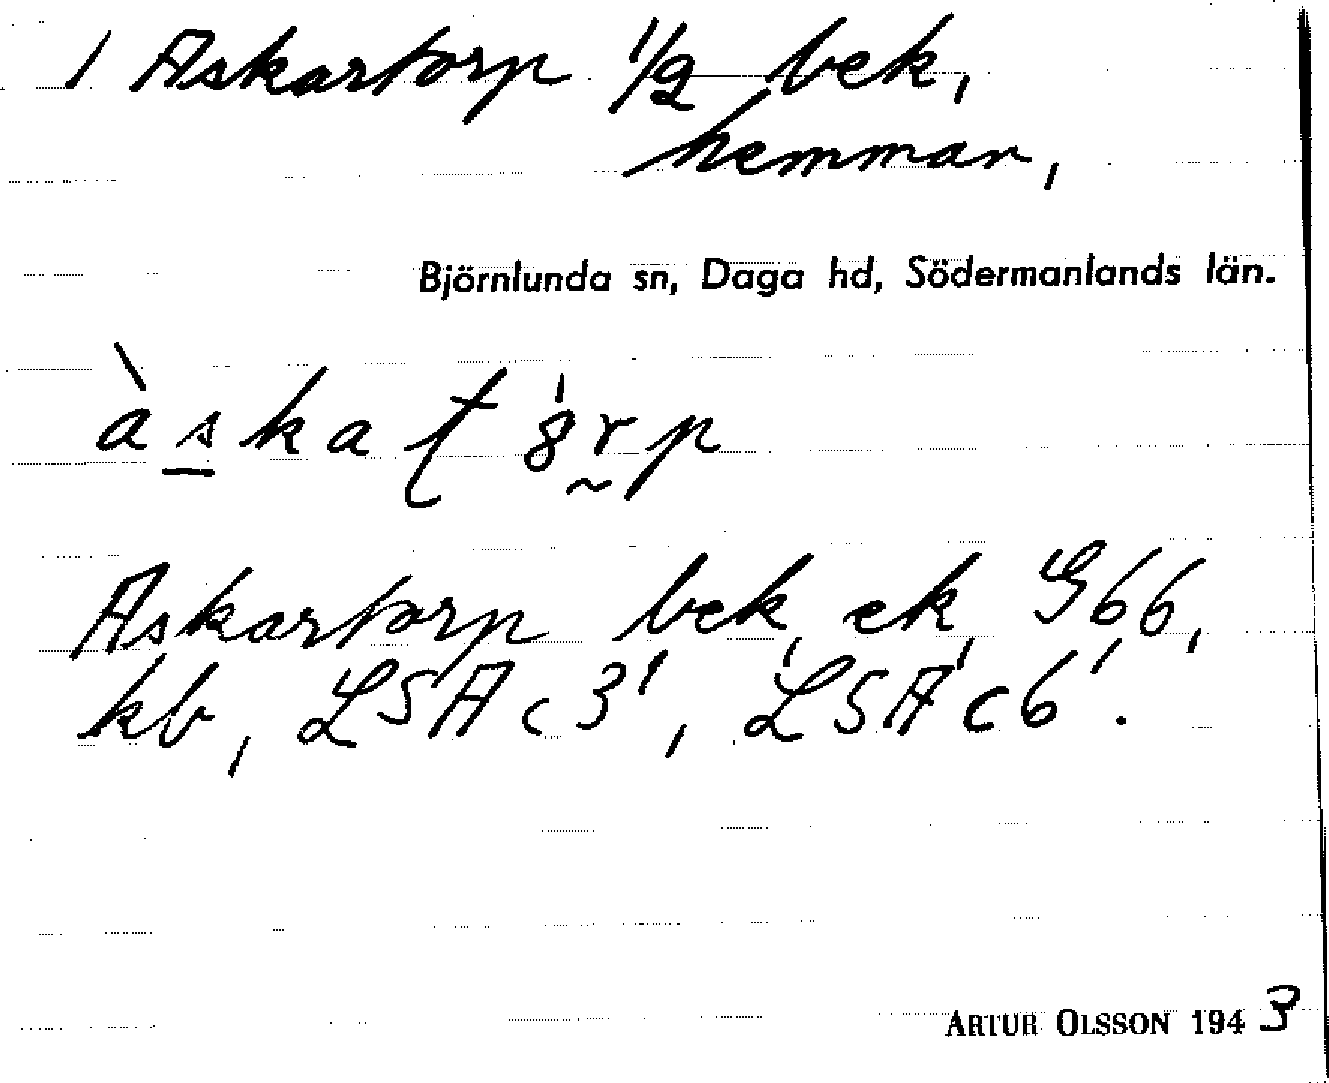 1 Askartorp 1/2 bek,
hemman,
Björnlunda sn, Daga hd, Södermanlands län.
Askartorp bek, ek, G66,
kb, LSA c3', LSA c6'.
ARTUR OLSSON 1943